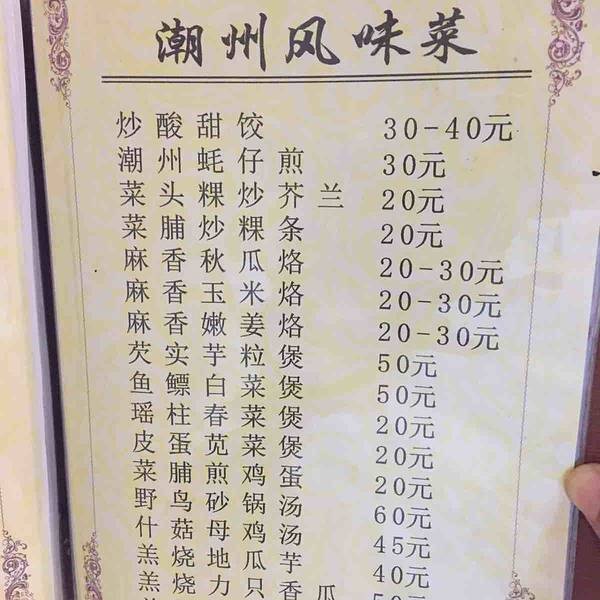 潮州风味菜
炒酸甜饺 30-40元
潮州蚝仔煎 30元
菜头粿炒芥兰 20元
菜脯炒粿条 20元
麻香秋瓜烙 20-30元
麻香玉米烙 20-30元
麻香嫩姜烙 20-30元
芡实芋粒煲 50元
鱼鳔白菜煲 50元
瑶柱春菜煲 20元
皮蛋苋菜煲 20元
菜脯煎鸡蛋 20元
野鸟砂锅汤 60元
什菇母鸡汤 45元
羔烧地瓜芋 40元
羔烧